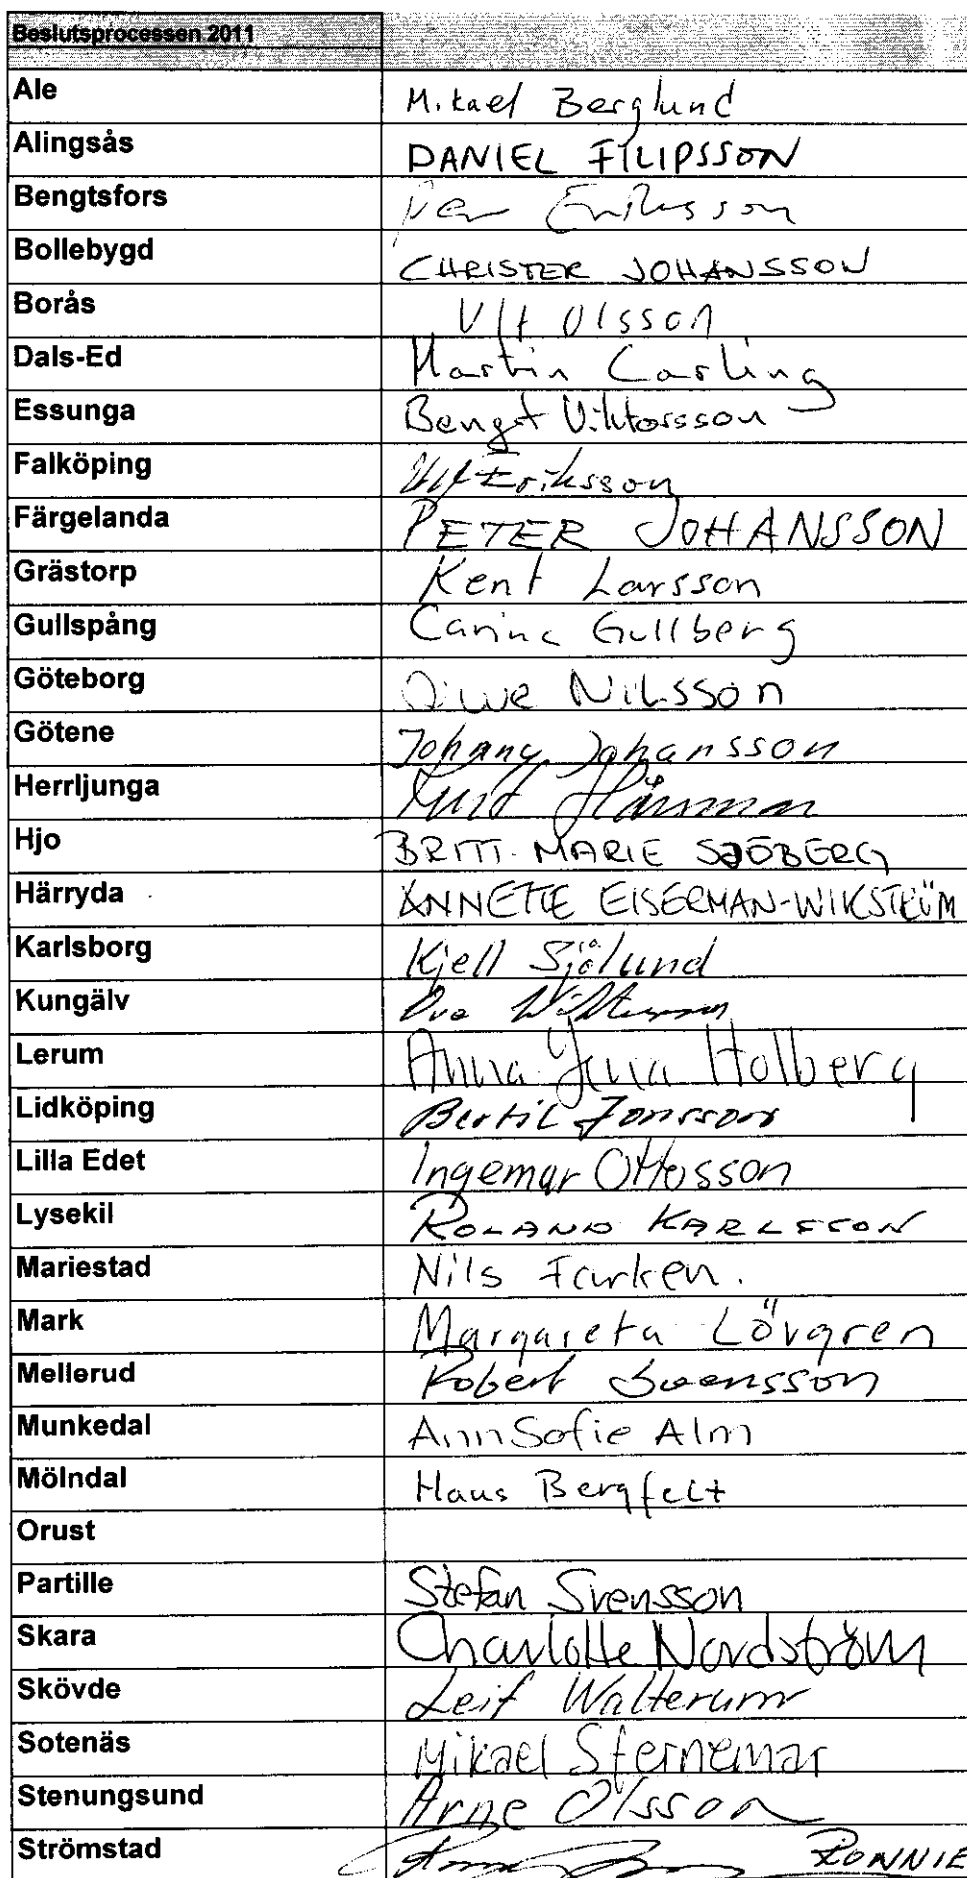 Beslutsprocessen 2011
Ale Mikael Berglund
Alingsås DANIEL FILIPSSON
Bengtsfors Per Eriksson
Bollebygd CHRISTER JOHANSSON
Borås Ulf Olsson
Dals-Ed Martin Carling
Essunga Bengt Viktorsson
Falköping Ulf Eriksson
Färgelanda PETER JOHANSSON
Grästorp Kent Larsson
Gullspång Carina Gullberg
Göteborg Nilsson
Götene Johnny Johansson
Herrljunga Kurt Hårsmar
Hjo BRITT-MARIE SJÖBERG
Härryda ANNETTE EISERMAN-WIKSTRÖM
Karlsborg Kjell Sjölund
Kungälv Ove
Lerum Anna-Lena Holberg
Lidköping Bertil Jonsson
Lilla Edet Ingemar Ottosson
Lysekil ROLAND KARLSSON
Mariestad Nils Farken.
Mark Margareta Lövgren
Mellerud Robert Svensson
Munkedal AnnSofie Alm
Mölndal Hans Bergfelt
Orust
Partille Stefan Svensson
Skara Charlotte Nordström
Skövde Leif Walterum
Sotenäs Mikael Sternemar
Stenungsund Arne Olsson
Strömstad RONNIE